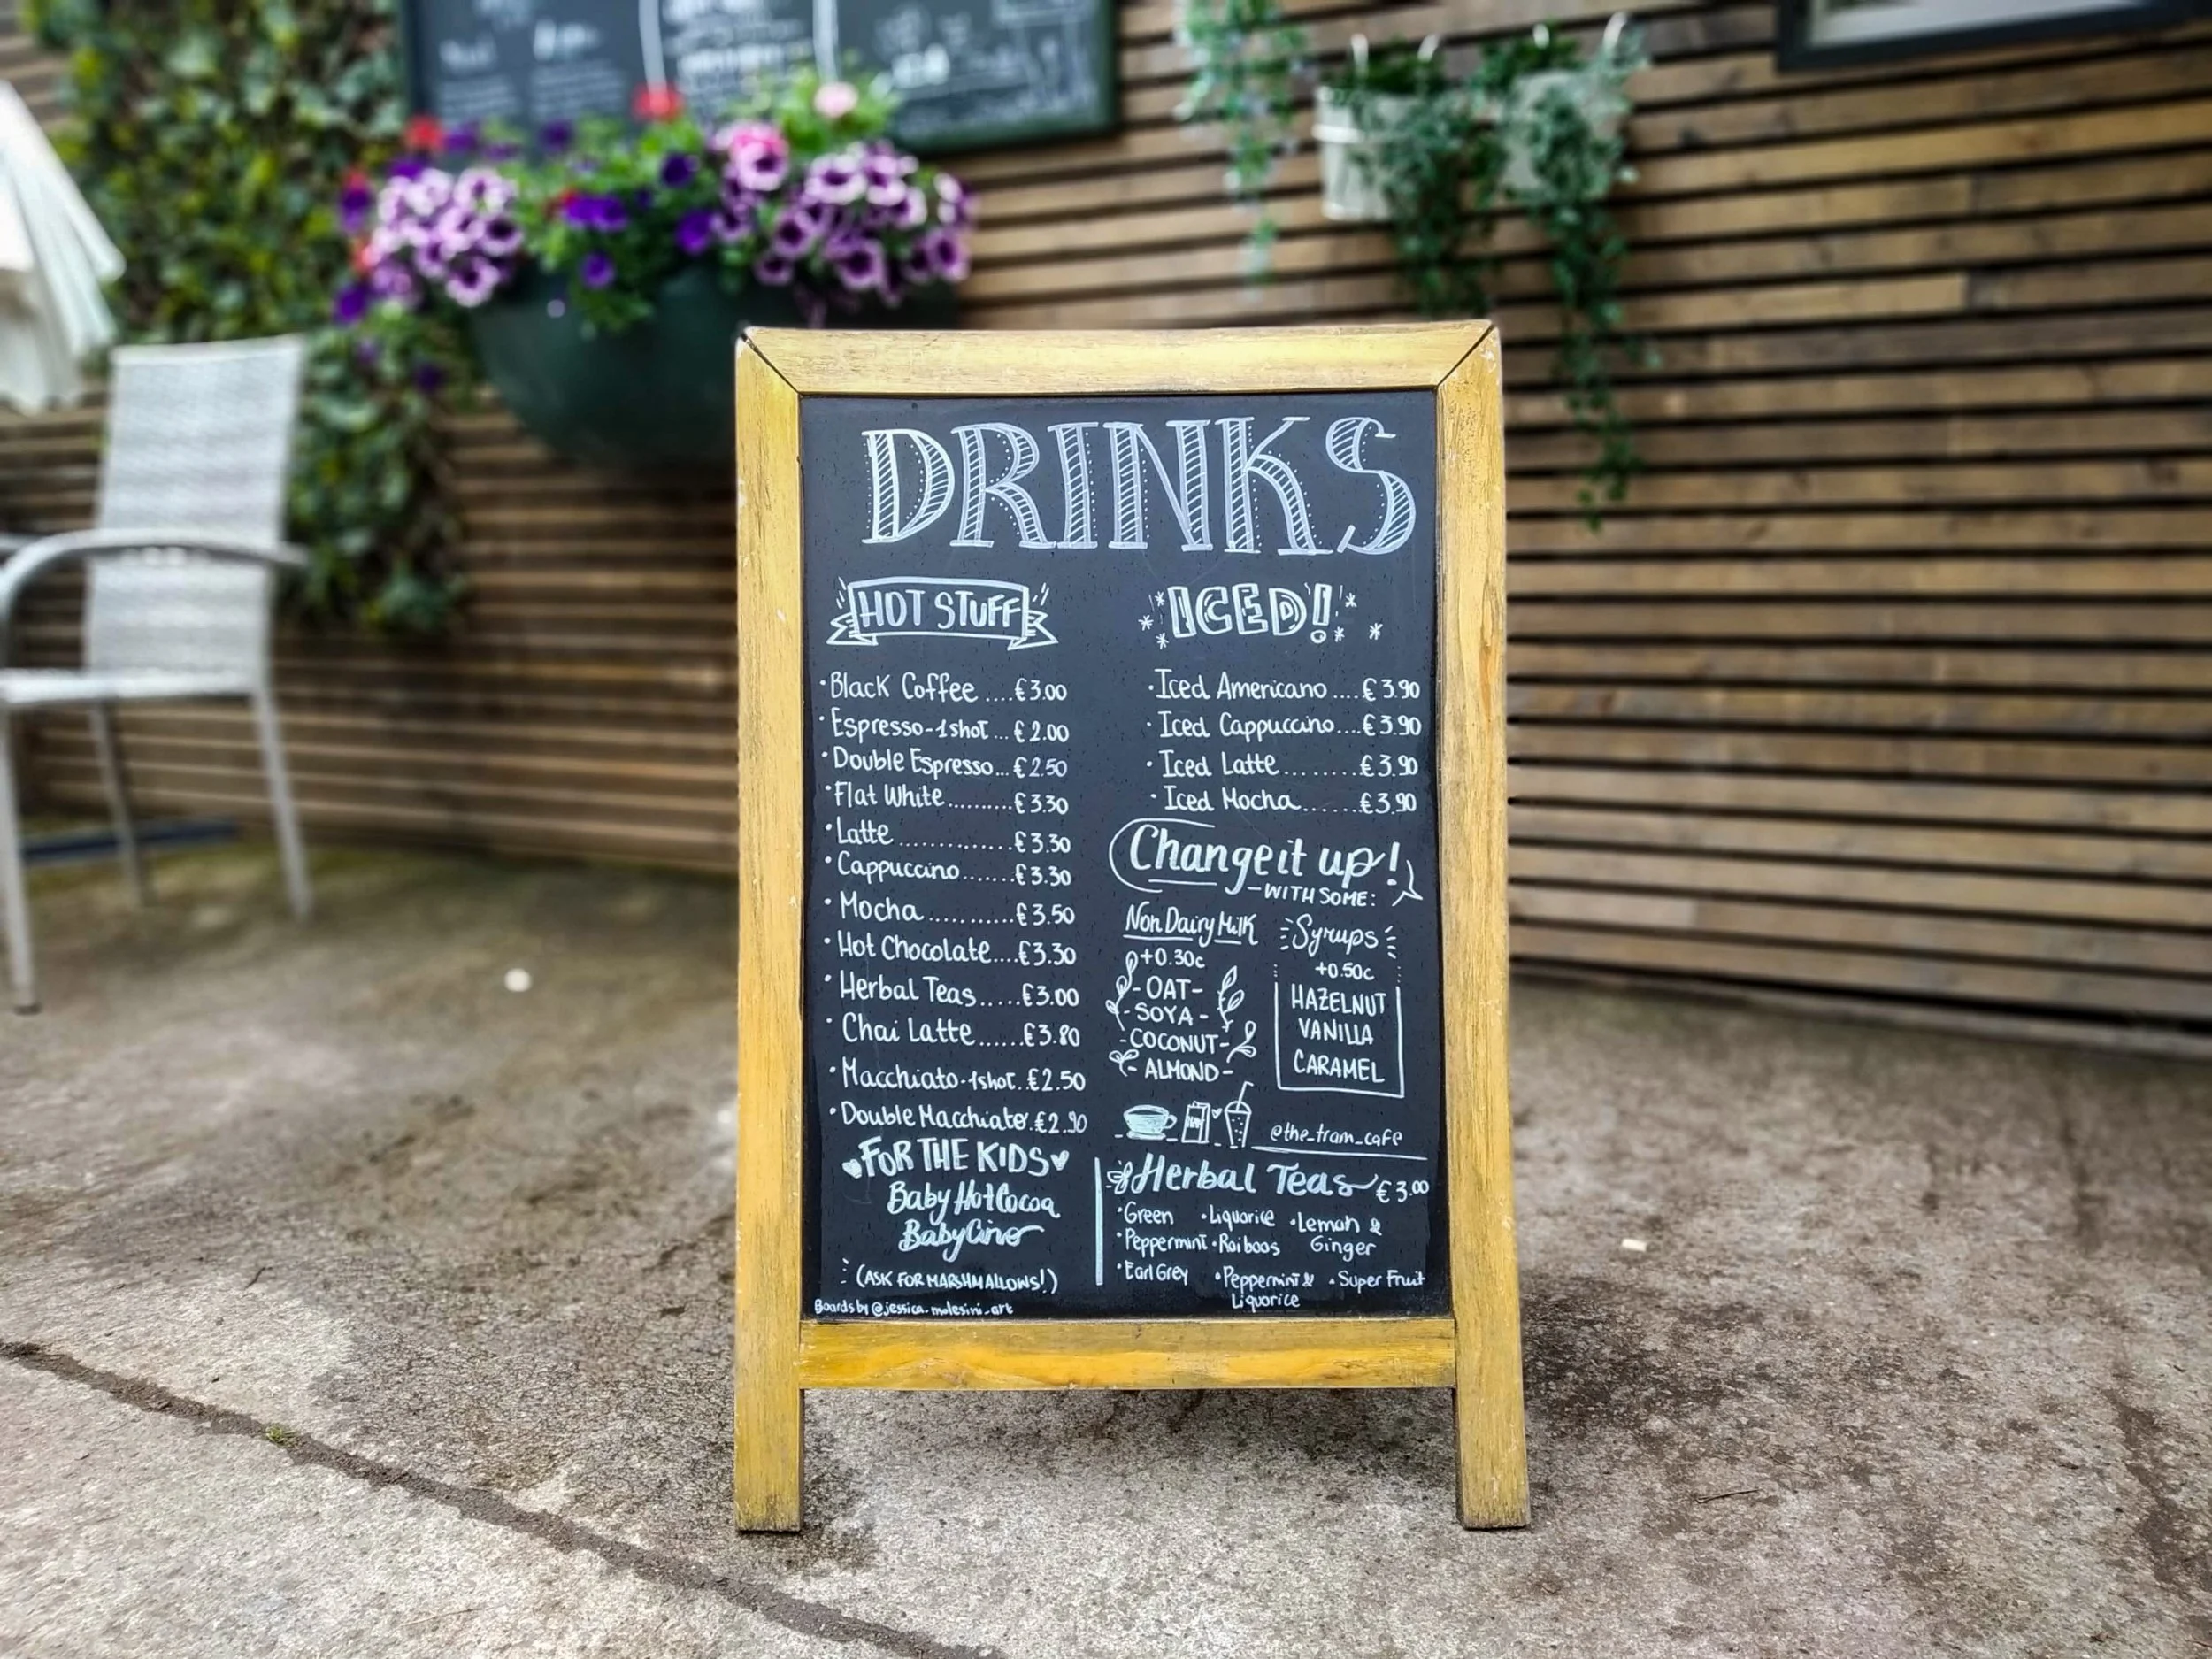 DRINKS
HOT STUFF
·Black Coffee ....€3.00
·Espresso-1shot...€2.00
·Double Espresso...€2.50
·Flat White.........€3.30
·Latte..............€3.30
·Cappuccino.......€3.30
·Mocha...........€3.50
·Hot Chocolate....€3.30
·Herbal Teas.....€3.00
·Chai Latte......€3.80
·Macchiato-1shot..€2.50
·Double Macchiato.€2.90
FOR THE KIDS
Baby Hot Cocoa
BabyCino
(ASK FOR MARSHMALLOWS!)
Boards by @jessica.molesini_art
ICED!
·Iced Americano....€3.90
·Iced Cappuccino....€3.90
·Iced Latte........€3.90
·Iced Mocha.......€3.90
Change it up!
-WITH SOME:
Non Dairy Milk
+0.30c
-OAT-
-SOYA-
-COCONUT-
-ALMOND-
Syrups
+0.50c
HAZELNUT
VANILLA
CARAMEL
@the_tram_cafe
Herbal Teas €3.00
·Green ·Liquorice ·Lemon &
Ginger
·Peppermint ·Roiboos
·Earl Grey ·Peppermint & ·Super Fruit
Liquorice